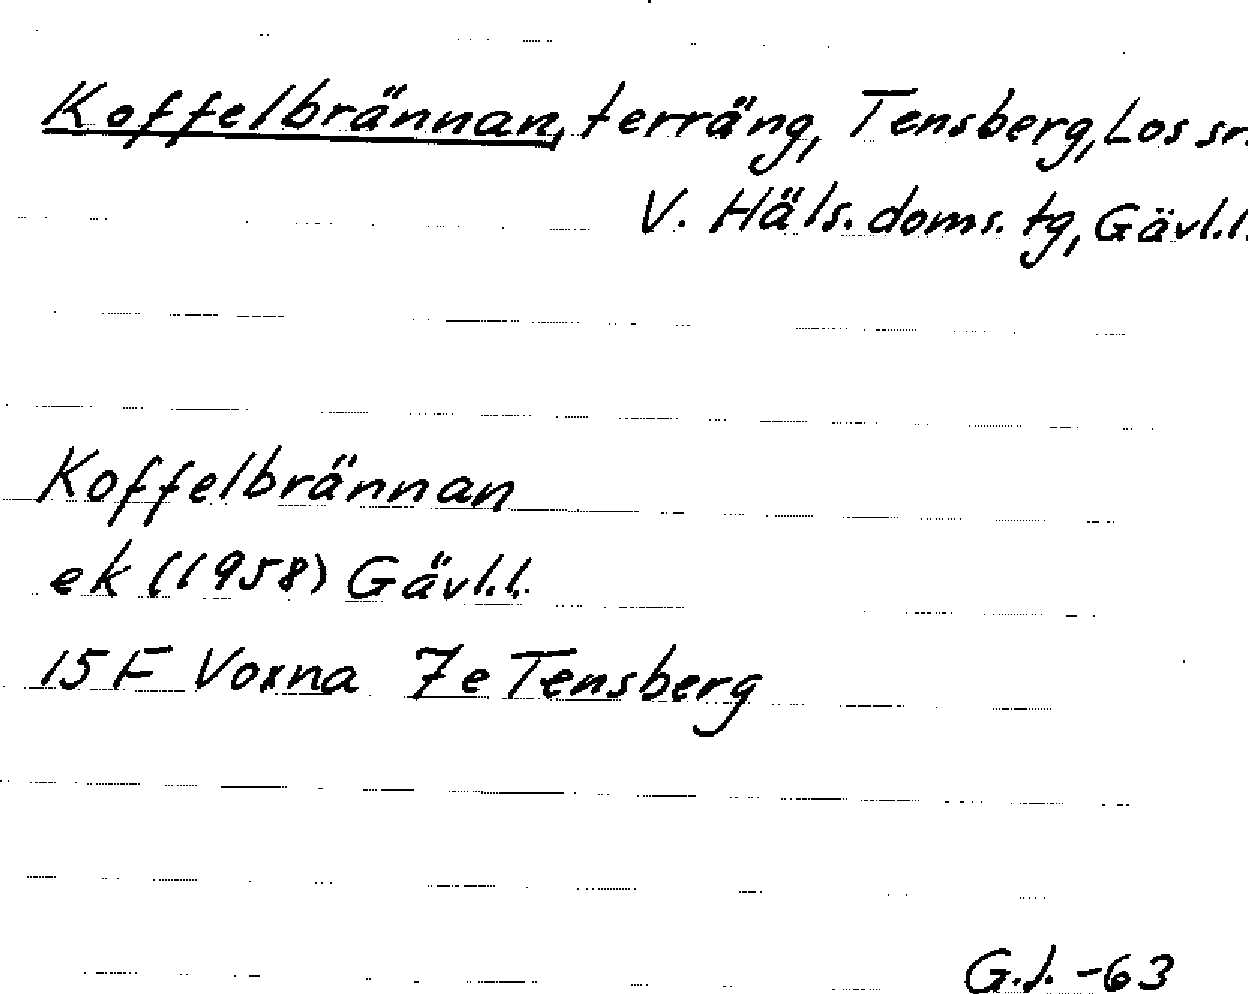 Koffelbrännan, terräng, Tensberg, Los sn.
V. Häls. doms. tg, Gävl.l.
Koffelbrännan
ek (1958) Gävl.l.
15 F Voxna 7e Tensberg
G.J. -63